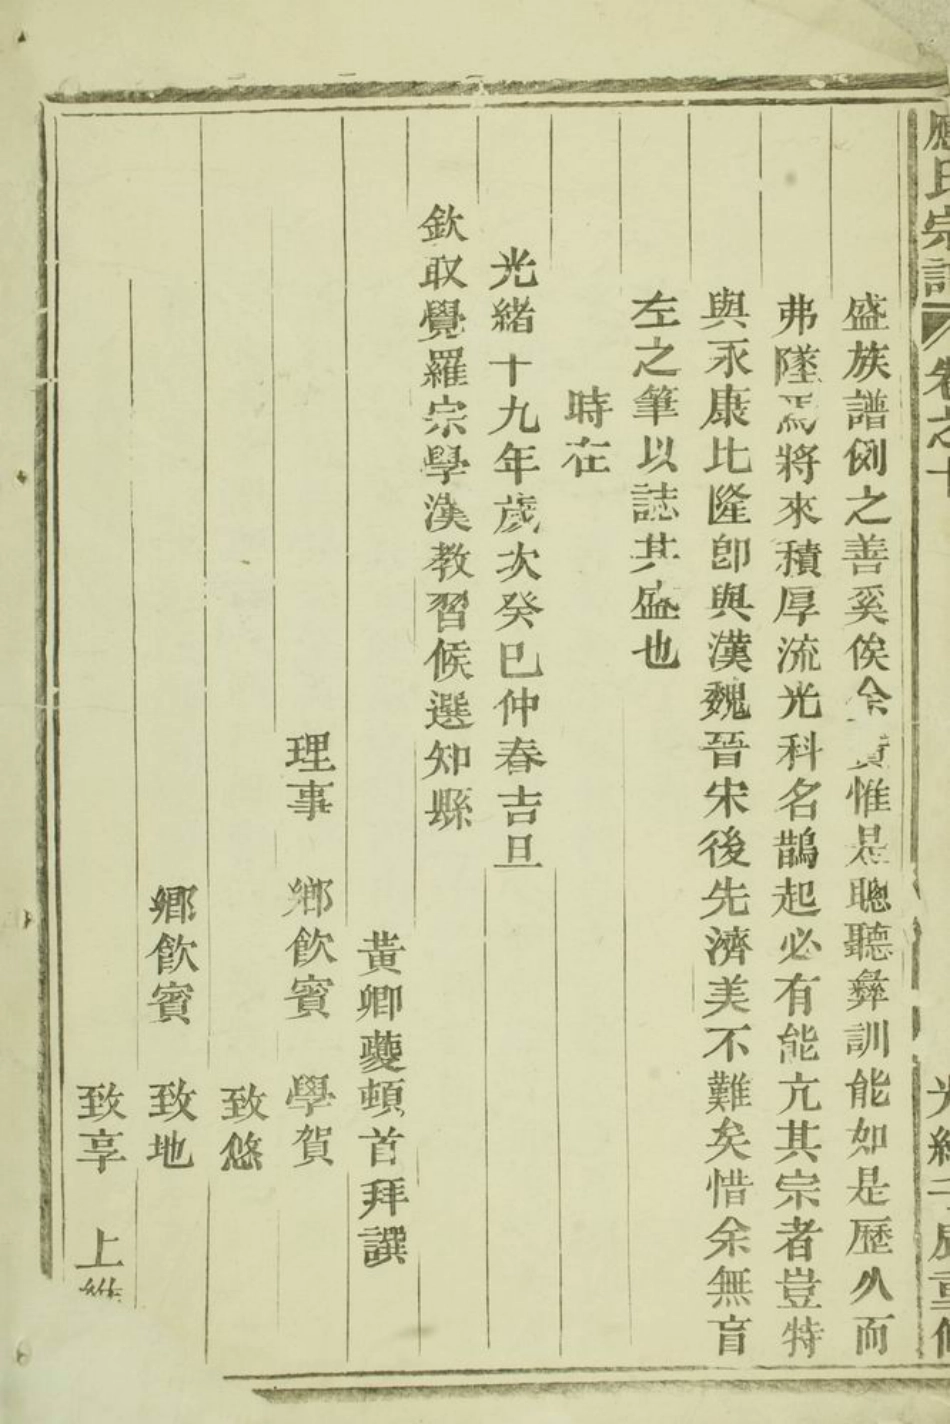 應氏宗譜 卷之十 光緒壬辰重修
盛族譜例之善奚俟余贅惟是聰聽彝訓能如是歷久而
弗墜焉將來積厚流光科名鵲起必有能亢其宗者豈特
與永康比隆卽與漢魏晉宋後先濟美不難矣惜余無盲
左之筆以誌其盛也
時在
光緒十九年歲次癸巳仲春吉旦
欽取覺羅宗學漢教習候選知縣
黃卿夔頓首拜譔
理事 鄉飲賓 學賀
致悠
鄉飲賓 致地
致享 上